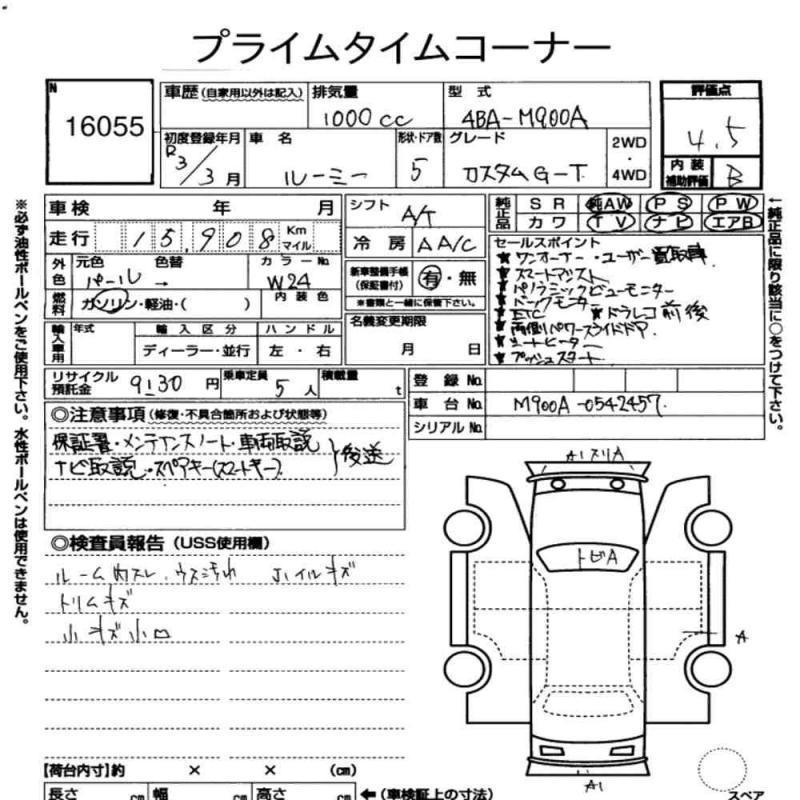 プライムタイムコーナー
N
16055
車歴 (自家用以外は記入)
排気量
1000 cc
型式
4BA-M900A
評価点
4.5
初度登録年月
R3/3月
車名
ルーミー
形状・ドア数
5
グレード
カスタムG-T
2WD
・
4WD
内装
補助評価
B
車検 年 月
走行 15,908 Km
マイル
外色
元色
パール →
色替
カラーNo
W24
燃料
ガソリン・軽油・( )
内装色
輸入車用
年式
輸入区分
ディーラー・並行
ハンドル
左・右
シフト
A/T
冷房 AA/C
新車整備手帳
(保証書付)
有・無
※書類と一緒に保管下さい。
名義変更期限
月 日
純正品
SR 純AW PS PW
カワ TV ナビ エアB
セールスポイント
★ワンオーナー・ユーザー買取車
★スマートアシスト
★パノラミックビューモニター
★ドックモニタ
★ETC ★ドラレコ前後
★両側パワースライドドア
★シートヒーター
★プッシュスタート
リサイクル
預託金
9130円
乗車定員
5人
積載量
t
登録No.
車台No.
M900A-0542457
シリアルNo.
◎注意事項 (修復・不具合箇所および状態等)
保証書・メンテナンスノート・車両取説
ナビ取説・スペアキー(スマートキー)
後送
◎検査員報告 (USS使用欄)
ルーム内スレ、ウス汚れ ホイルキズ
トリムキズ
小キズ小凹
A1スリA
トビA
A
A1
スペア
【荷台内寸】約 × × (cm)
長さ cm 幅 cm 高さ cm ←(車検証上の寸法)
※必ず油性ボールペンをご使用下さい。水性ボールペンは使用できません。
←純正品に限り該当に○をつけて下さい。